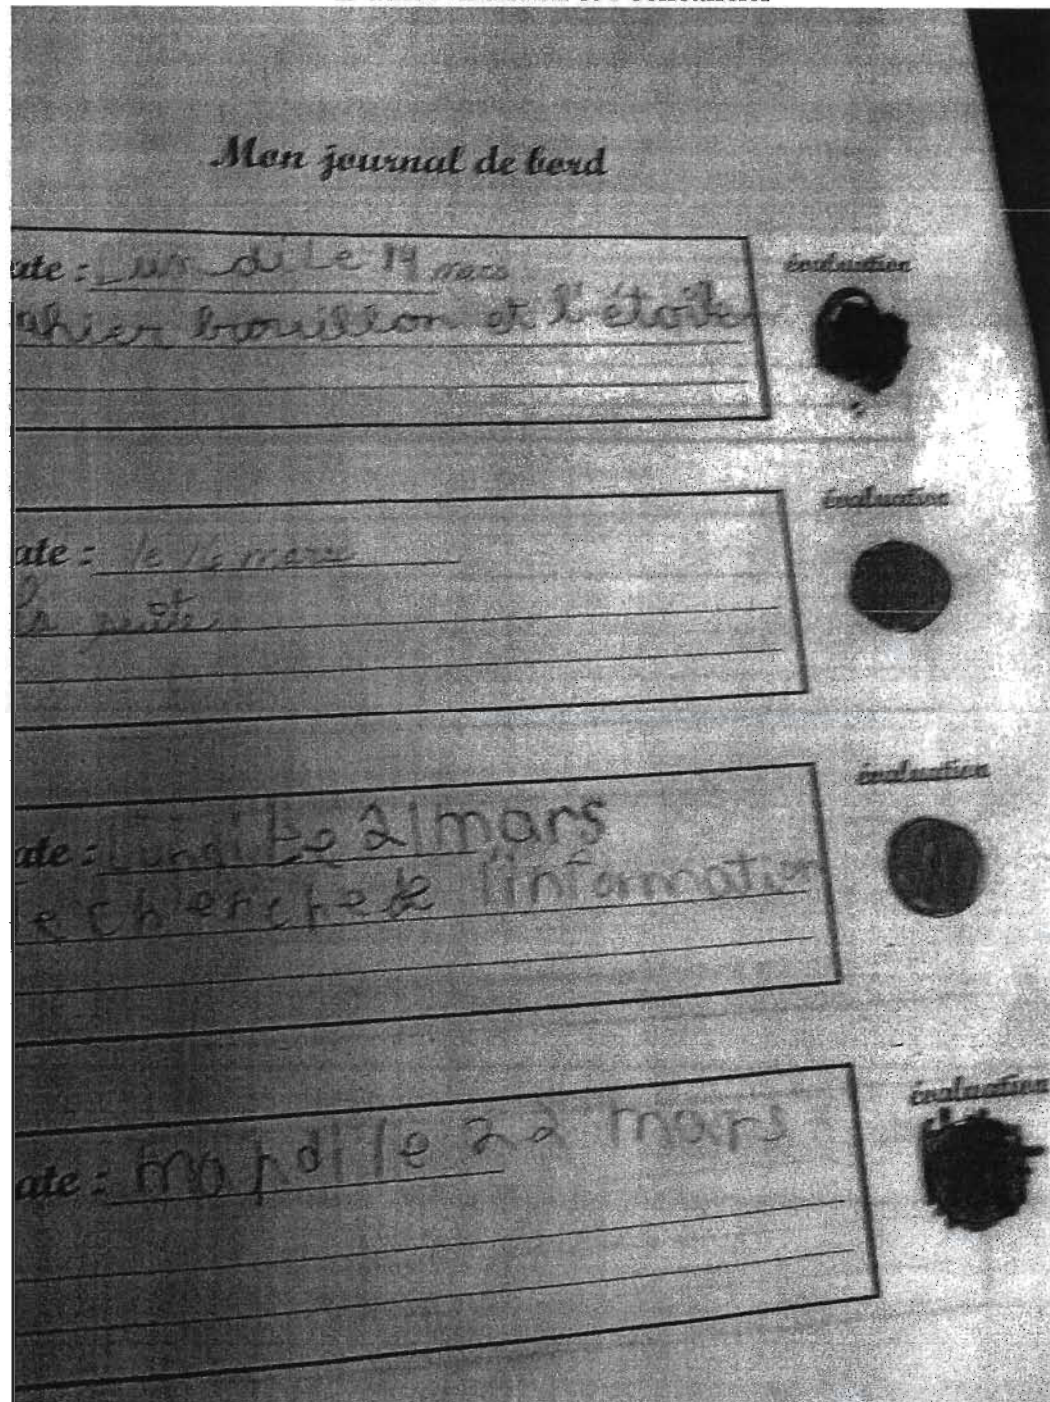 Mon journal de bord
ate : Lundi Le 14 mars
évaluation
ahier brouillon et l'étoile
évaluation
ate : le 16 mars
suite
évaluation
ate : Lundi Le 21 mars
e cherche de l'information
évaluation
ate : mardi le 22 mars